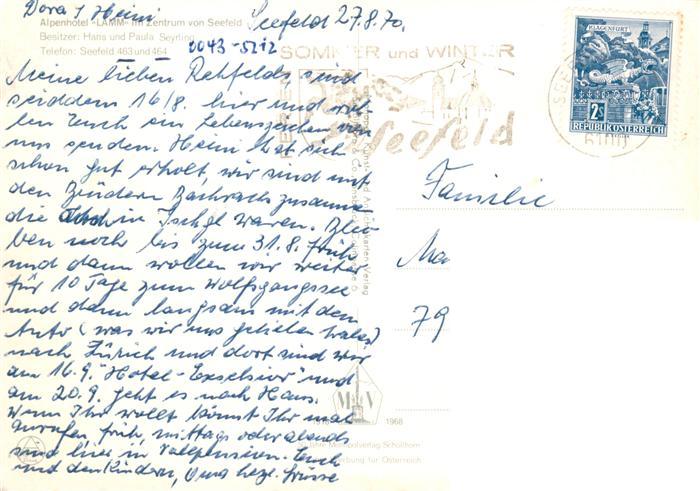 Dora & Heini
Seefeld 27.8.70.
Alpenhotel «LAMM» im Zentrum von Seefeld
Besitzer: Hans und Paula Seyrling
Telefon: Seefeld 463 und 464
0043-5212
Meine lieben Rehfelds sind
seiddem 16/8. hier und wol-
len Euch ein Lebenszeichen von
uns senden. Heini hat sich
schon gut erholt, wir sind mit
den Brüdern Bacharach zusamm
die auch in Ischgl waren. Blei-
ben noch bis zum 31.8. früh
und dann wollen wir weiter
für 10 Tage zum Wolfgangsee
und dann langsam mit dem
Auto (was wir uns geliehen haben)
nach Zürich und dort sind wir
am 16.9. "Hotel-Exselsior" und
am 20.9. geht es nach Haus.
Wenn Ihr wollt könnt Ihr mal
anrufen, früh, mittags oder abends
sind hier in Vollpension. Euch
und den Kindern, Oma herzl. Grüsse
SOMMER und WINTER
Seefeld
KLAGENFURT
2S
REPUBLIK ÖSTERREICH
Familie
Ma
79
1968